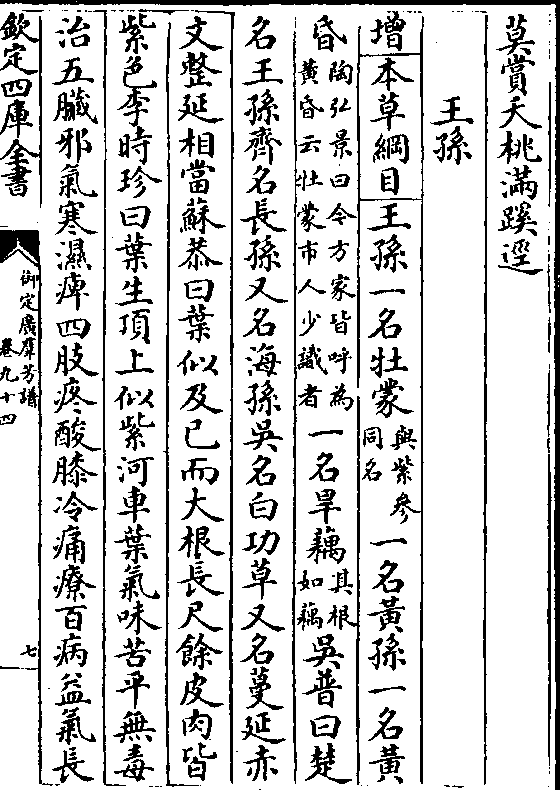 莫賞夭桃滿蹊逕
王孫
增本草綱目王孫一名牡蒙與紫參同名一名黃孫一名黃
昏陶弘景曰今方家皆呼為黃昏云牡蒙市人少識者一名旱藕其根如藕吳普曰楚
名王孫齊名長孫又名海孫吳名白功草又名蔓延赤
文整延相當蘇恭曰葉似及已而大根長尺餘皮肉皆
紫色李時珍曰葉生頂上似紫河車葉氣味苦平無毒
治五臟邪氣寒濕痺四肢疼酸膝冷痛療百病益氣長
欽定四庫全書
御定廣羣芳譜
卷九十四
七